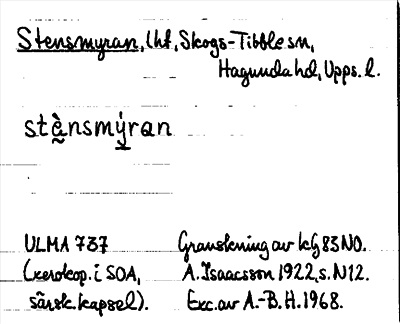 Stensmyran, lht, Skogs-Tibble sn,
Hagunda hd, Upps. l.
stὰ̰nsmý̱ran
ULMA 737 Granskning av kG 83 NO.
(xerokop. i SOA, A. Isaacsson 1922, s. N12.
särsk. kapsel). Exc. av A.-B. H. 1968.